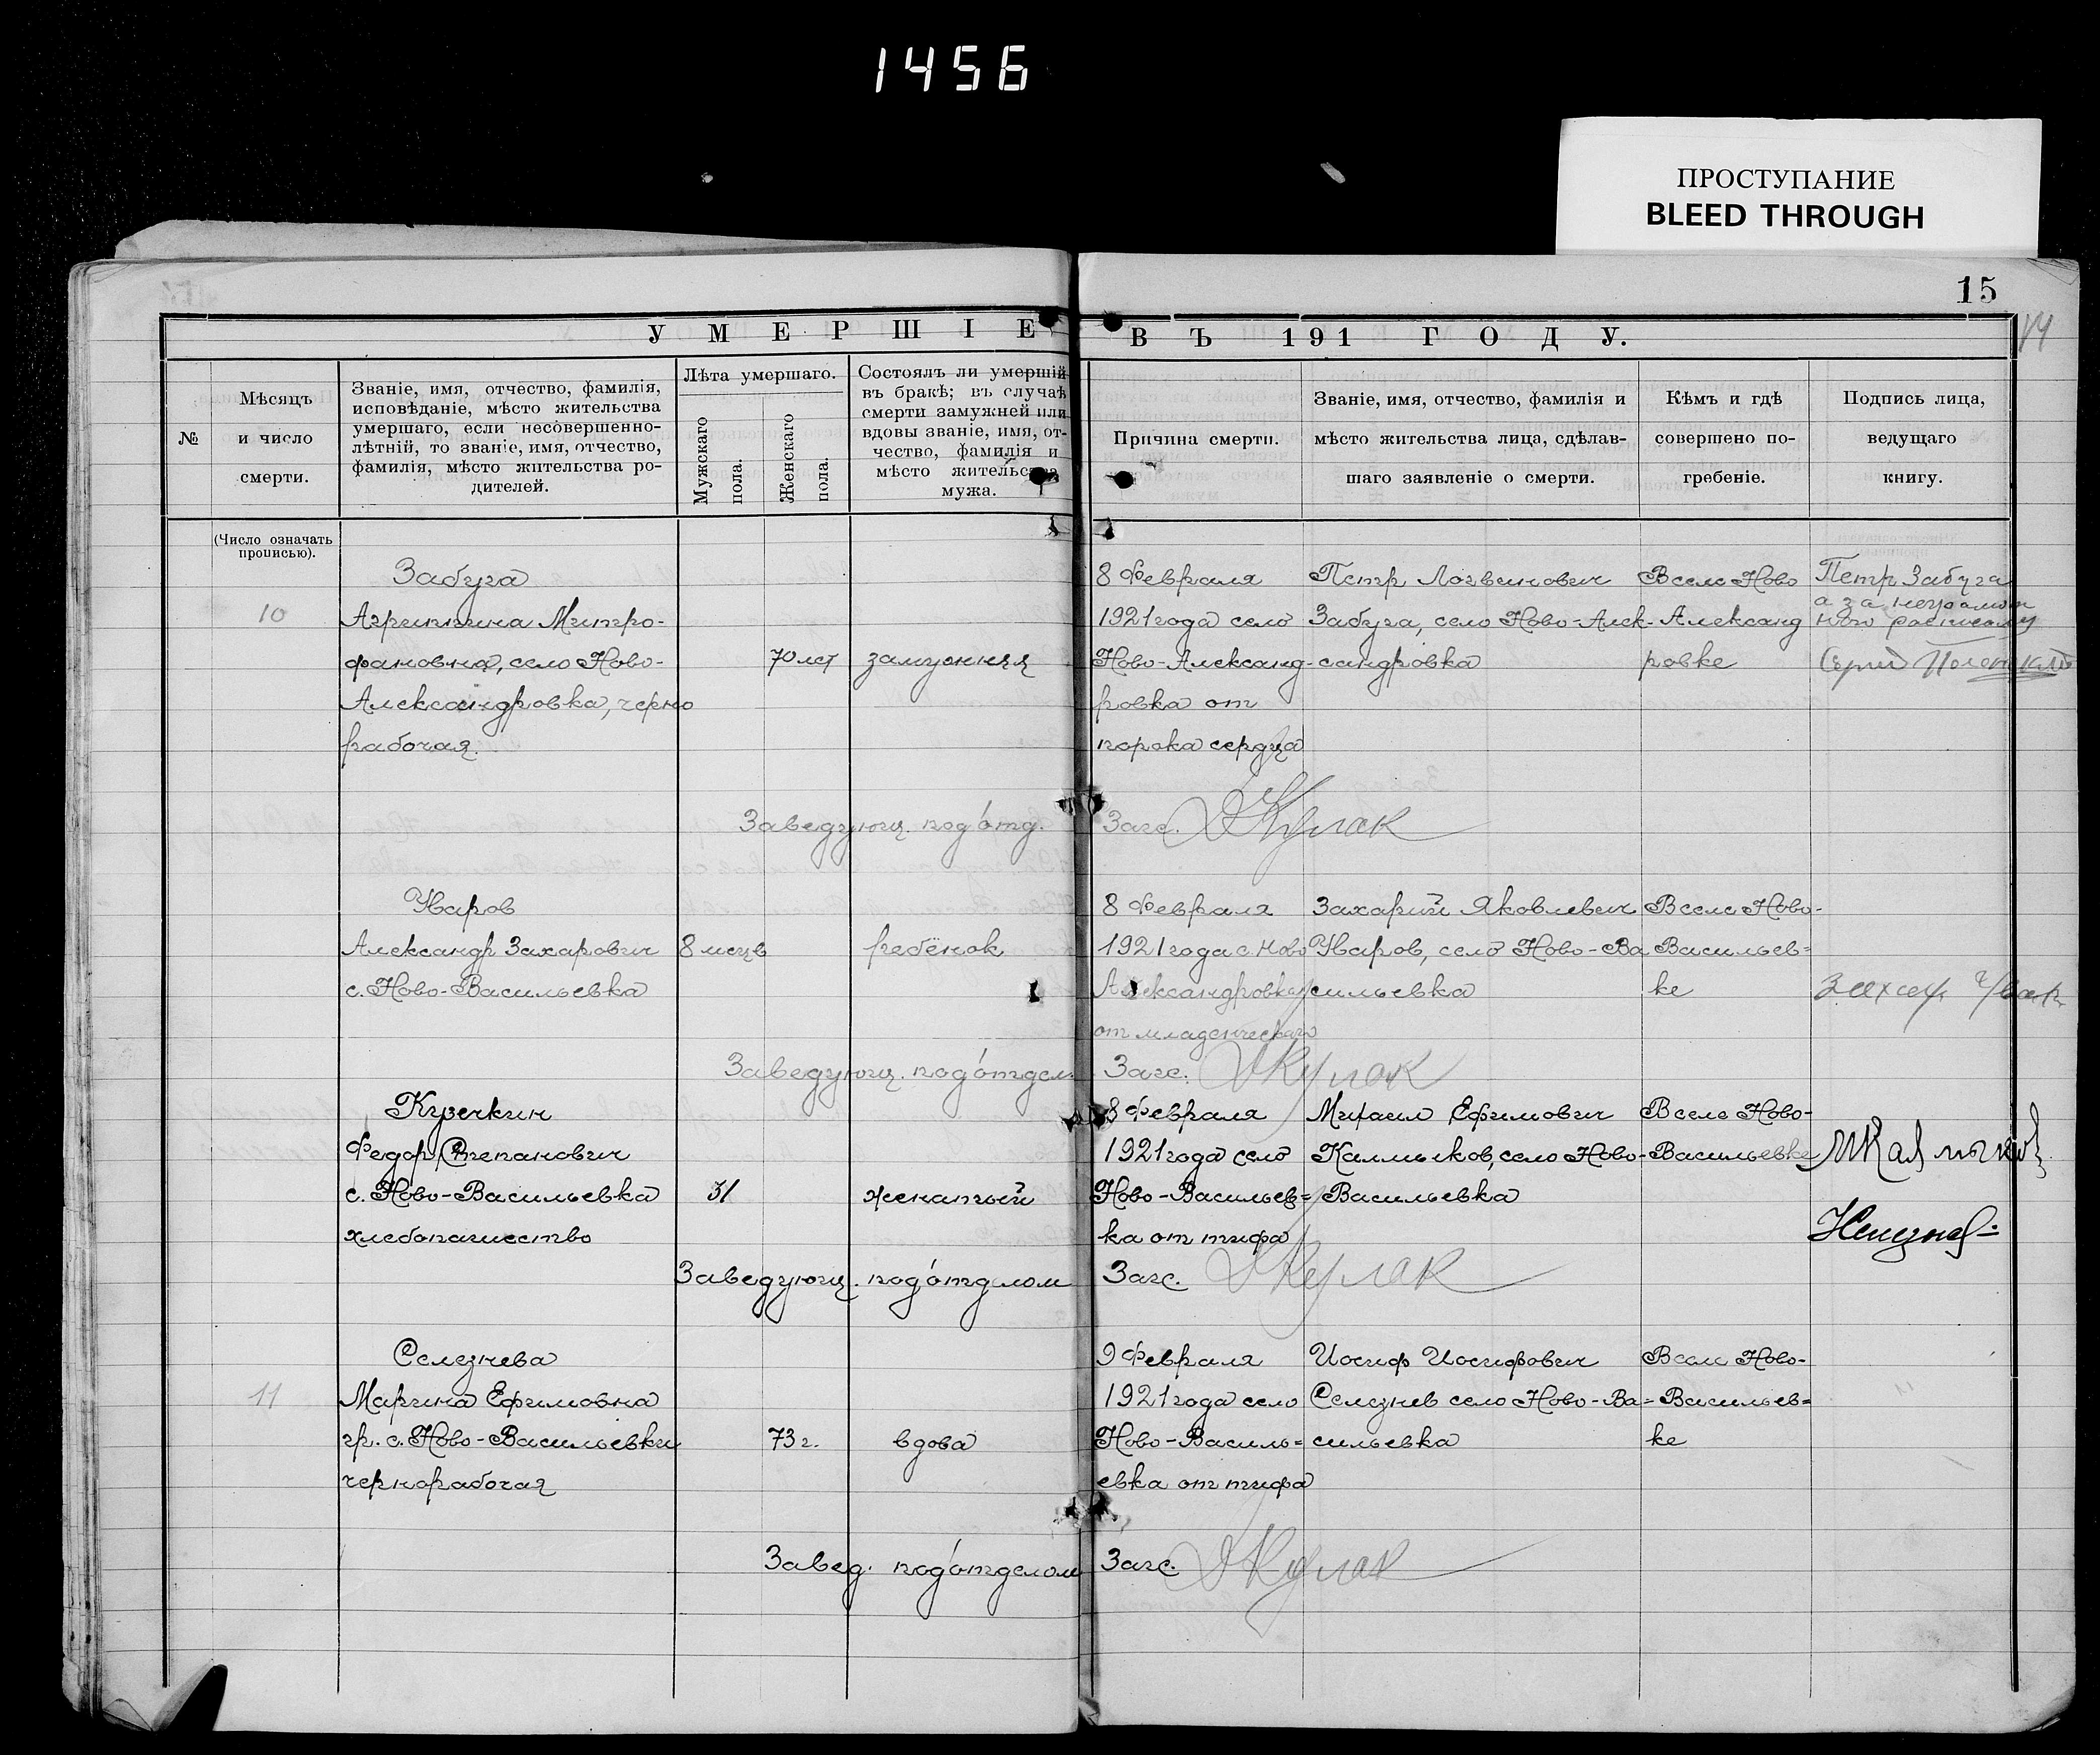 1456
ПРОСТУПАНИЕ
BLEED THROUGH
15
14
УМЕРШІЕ ВЪ 191 ГОДУ.
№
Мѣсяцъ
и число
смерти.
Званіе, имя, отчество, фамилія,
исповѣданіе, мѣсто жительства
умершаго, если несовершенно-
лѣтній, то званіе, имя, отчество,
фамилія, мѣсто жительства ро-
дителей.
Лѣта умершаго.
Мужскаго
пола.
Женскаго
пола.
Состоялъ ли умершій
въ бракѣ; въ случаѣ
смерти замужней или
вдовы званіе, имя, от-
чество, фамилія и
мѣсто жительства
мужа.
Причина смерти.
Званіе, имя, отчество, фамилія и
мѣсто жительства лица, сдѣлав-
шаго заявленіе о смерти.
Кѣмъ и гдѣ
совершено по-
гребеніе.
Подпись лица,
ведущаго
книгу.
(Число означать
прописью).
10
Забуга
Агрипина Митро-
фановна, село Ново-
Александровка, черно
рабочая.
70 лет
замужняя
8 Февраля
1921 года село
Ново-Александ-
ровка от
порока сердца
Петр Логвинович
Забуга, село Ново-Алек-
сандровка
В селе Ново
Александ
ровке
Петр Забуга
а за неграмот
ного
Заведующ. под'отд. Загс. Кулак
Уваров
Александр Захарович
с. Ново-Васильевка
8 месцв
ребёнок
8 Февраля
1921 года с. Ново
Александровка
от младенческаго
Захарий Яковлевич
Уваров, село Ново-Ва
сильевка
В селе Ново-
Васильев=
ке
Заведующ. под'отдел. Загс. Кулак
Курочкин
Федор Степанович
с. Ново-Васильевка
хлебопашество
31
женатый
8 Февраля
1921 года село
Ново-Васильев=
ка от тифа
Михаил Ефимович
Калмыков, село Ново-
Васильевка
В селе Ново-
Васильевке
МКалмыков
Заведующ. под'отделом Загс. Кулак
11
Селезнева
Марина Ефимовна
гр. с. Ново-Васильевки
чернорабочая
73 г.
вдова
9 Февраля
1921 года село
Ново-Василь=
евка от тифа
Иосиф Иосифович
Селезнев село Ново-Ва=
сильевка
В селе Ново-
Васильев=
ке
Завед. под'отделом Загс. Кулак